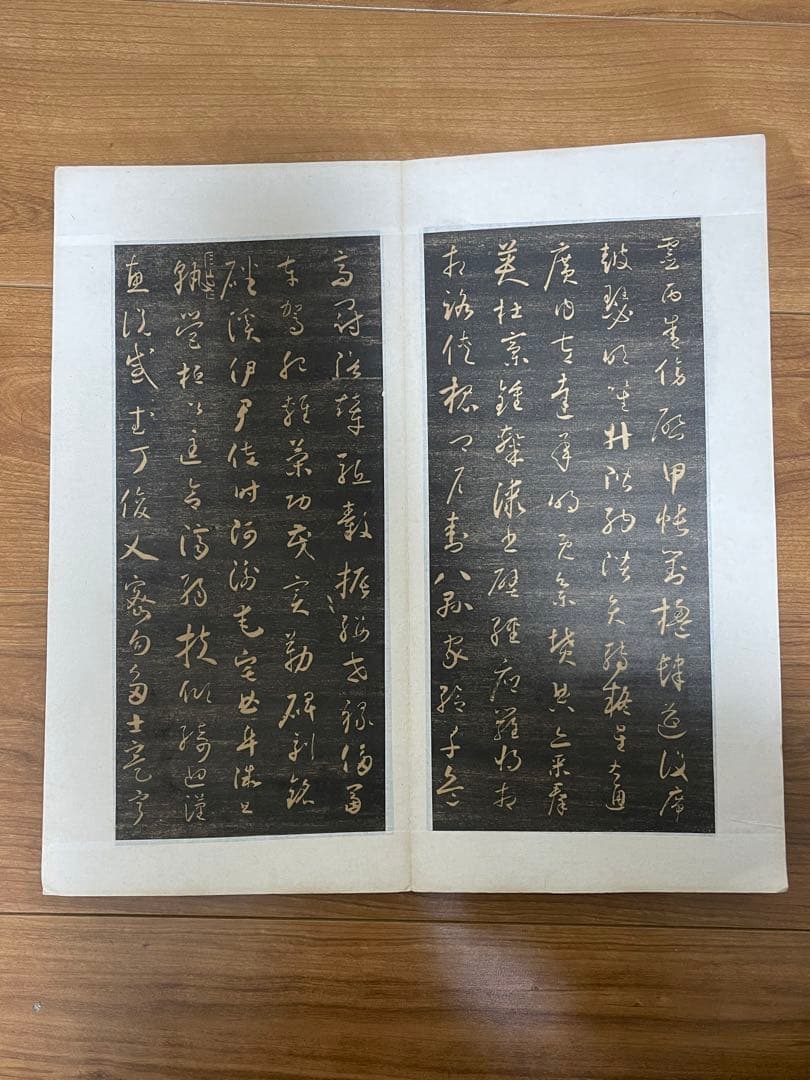 靈丙舍傍啓甲帳對楹肆筵設席
鼓瑟吹笙升階納陛弁轉疑星右通
廣內左達承明既集墳典亦聚群
英杜稾鍾隸漆書壁經府羅將相
相路俠槐卿戶封八縣家給千兵
高冠陪輦驅轂振纓世祿侈富
車駕肥輕策功茂實勒碑刻銘
磻溪伊尹佐時阿衡奄宅曲阜微旦
孰營桓公匡合濟弱扶傾綺迴漢
惠說感武丁俊乂密勿多士寔寧